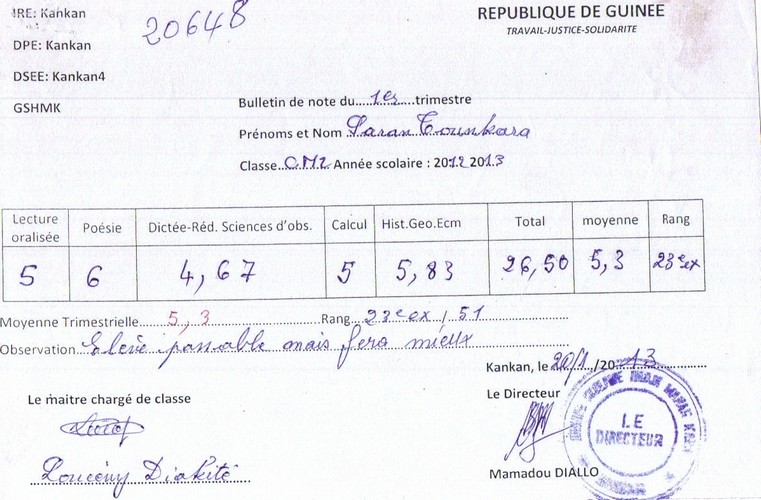 IRE: Kankan
20648
REPUBLIQUE DE GUINEE
TRAVAIL-JUSTICE-SOLIDARITE
DPE: Kankan
DSEE: Kankan4
GSHMK
Bulletin de note du....1er....trimestre
Prénoms et Nom Saran Tounkara
Classe..CM2 Année scolaire : 2012 2013
Lecture oralisée Poésie Dictée-Réd. Sciences d'obs. Calcul Hist.Geo.Ecm Total moyenne Rang
5 6 4,67 5 5,83 26,50 5,3 23e ex
Moyenne Trimestrielle.....5,3.....Rang...23e ex / 51
Observation..Elève passable mais fera mieux
Kankan, le 20/1/2013
Le maitre chargé de classe
Le Directeur
LE DIRECTEUR
Mamadou DIALLO
Loucény Diakité